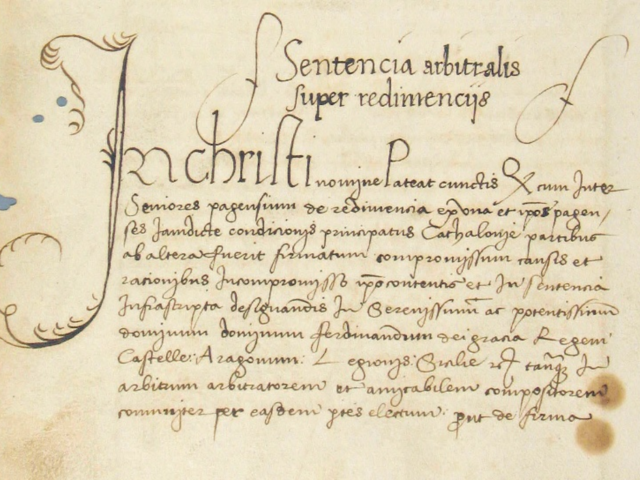 Sentencia arbitralis
super redimencijs
In christi nomine Pateat cunctis Q cum Inter
Seniores pagensium de redimencia ex una et ipos pagen/
ses Iamdicte condicionis principatus Cathalonie partibus
ab altera fuerit firmatum compromissum causis et
racionibus Incompromisso ipo contentis et In sentencia
Infrascripta designandis In Serenissimũ ac potentissimũ
dominum dominum ferdinandum dei gracia Regem
Castelle: Aragonum: Legionis: Sicilie tanq̃ In
arbitrum arbitratorem et amicabilem compositorem
comuniter per easdem ptes electum: prut de firma